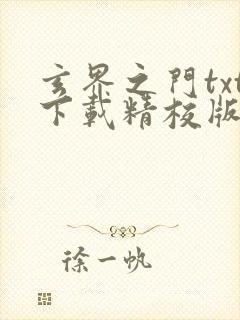 玄界之門txt
下載精校版
徐一帆